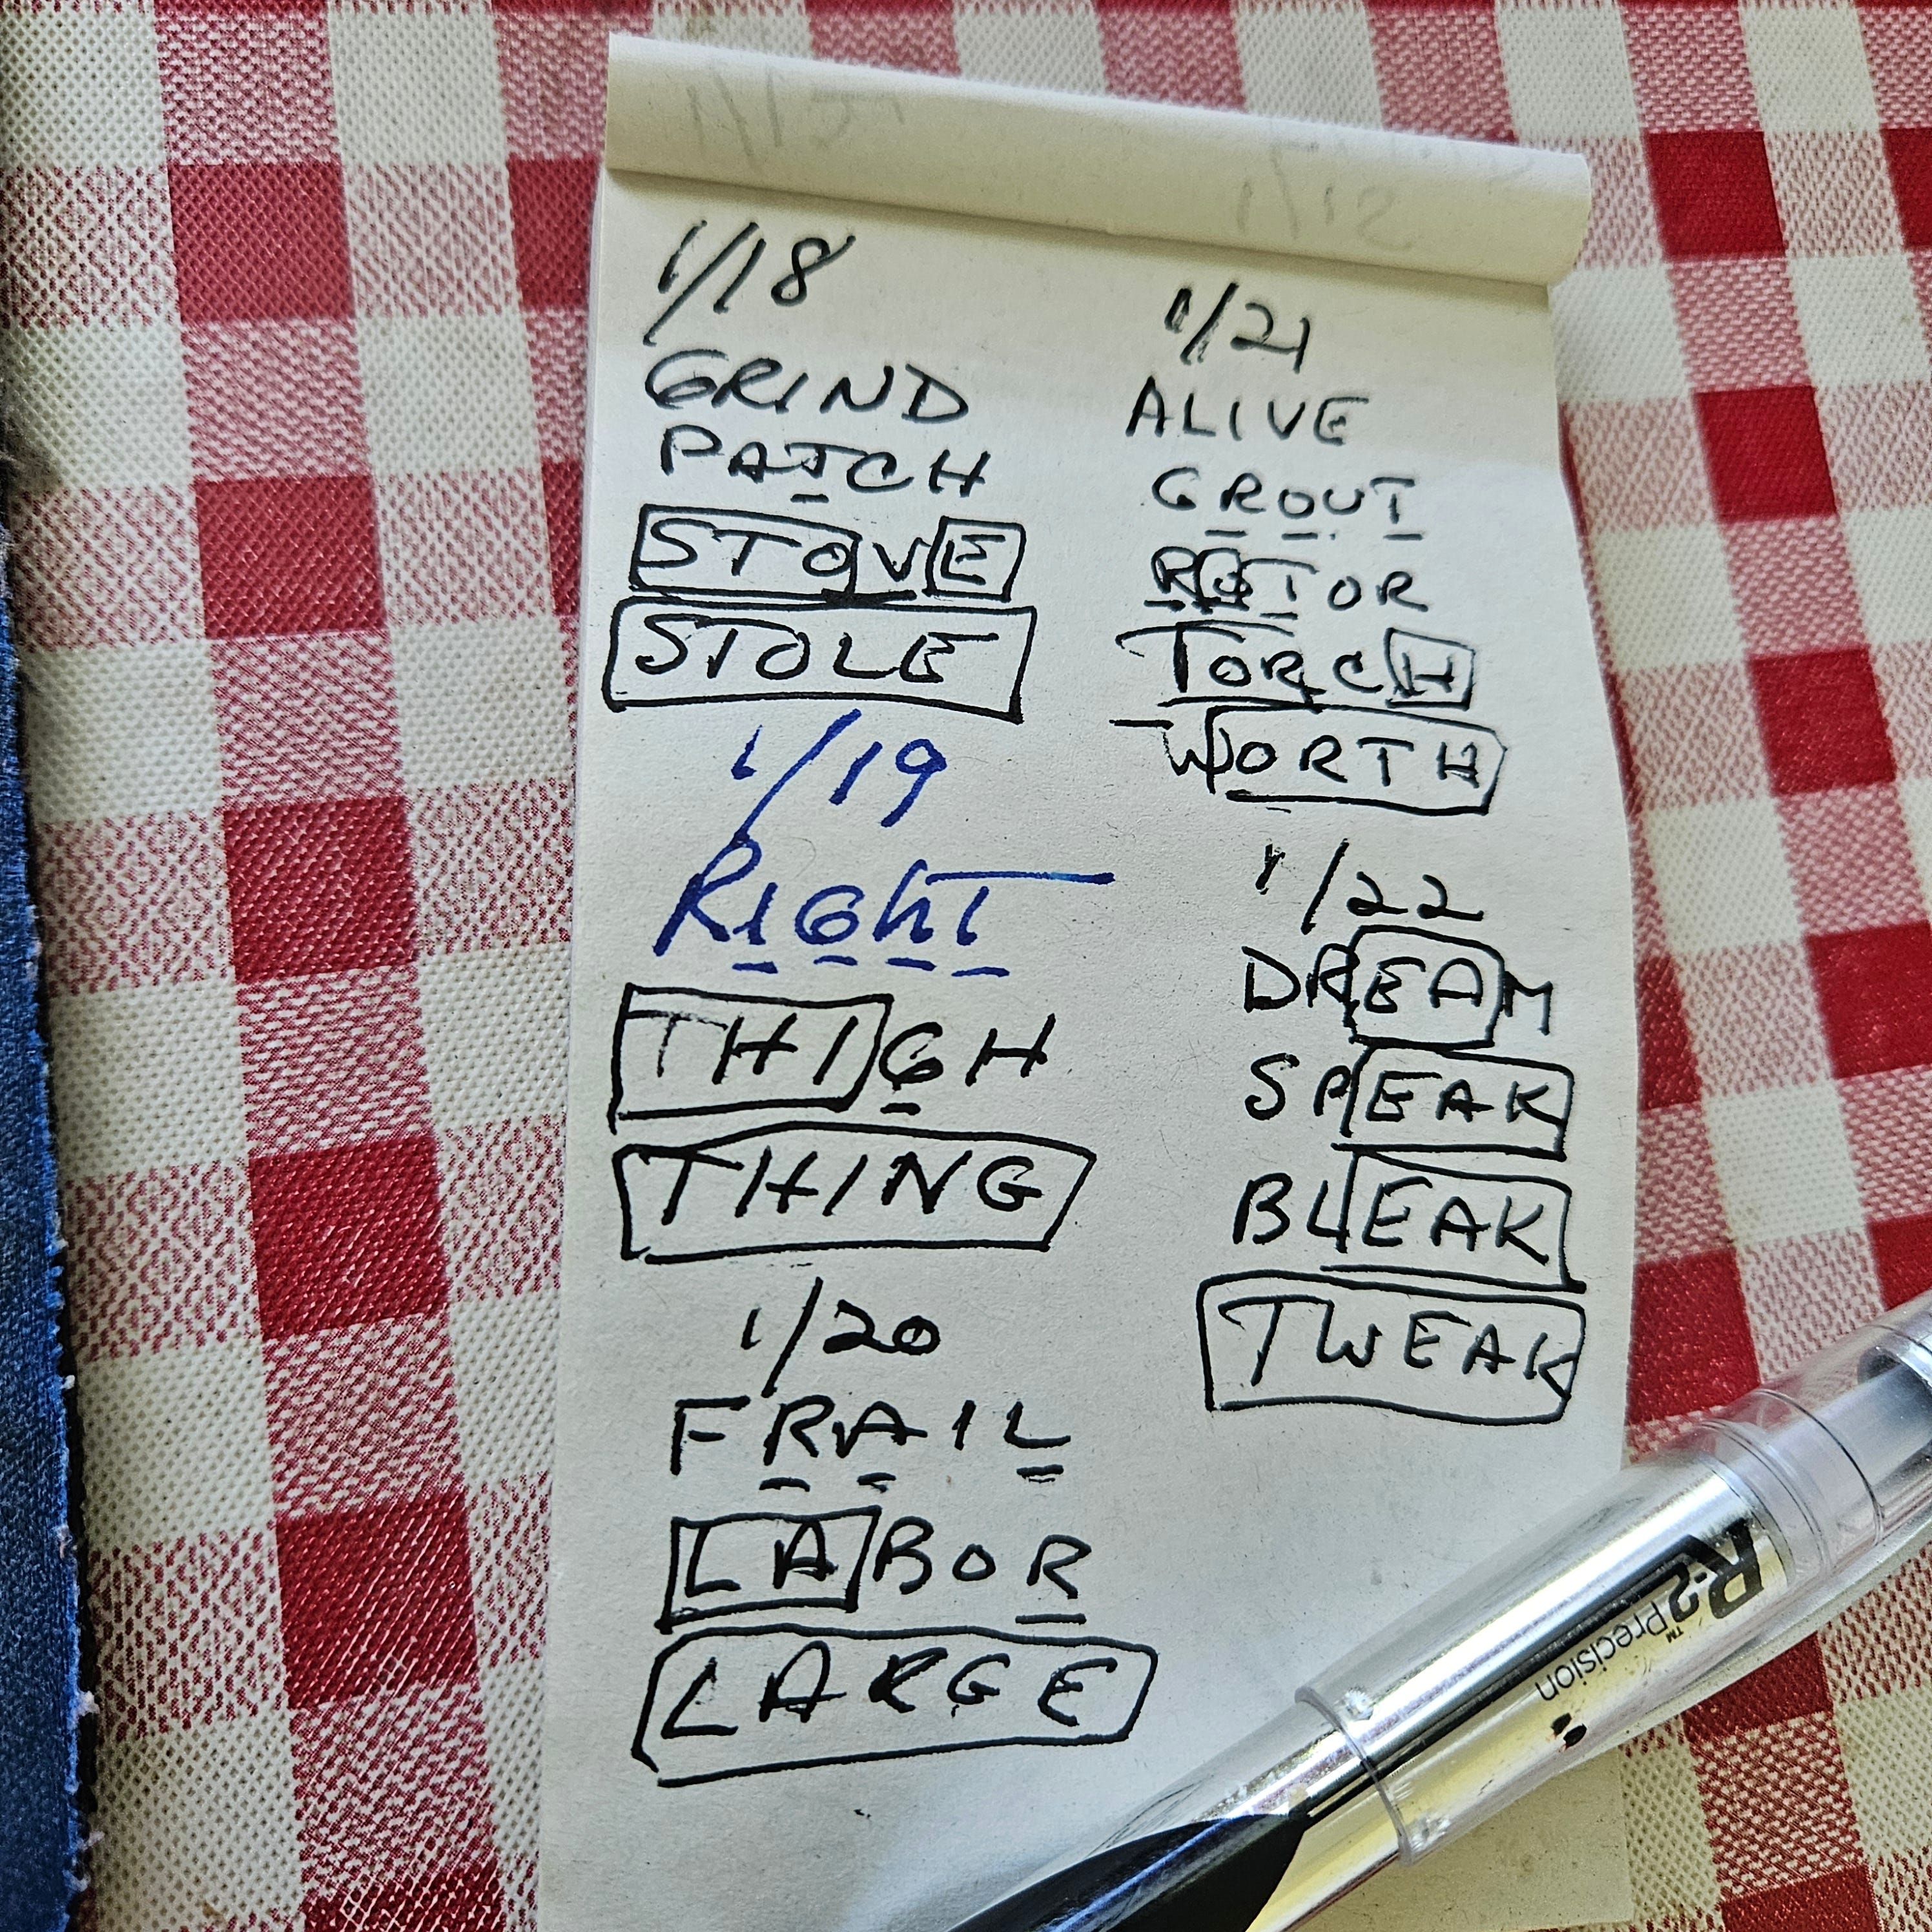 1/18
GRIND
PATCH
STOVE
STOLE
1/19
RIGHT
THIGH
THING
1/20
FRAIL
LABOR
LARGE
1/21
ALIVE
GROUT
ROTOR
TORCH
WORTH
1/22
DREAM
SPEAK
BLEAK
TWEAK
R-2
™Precision